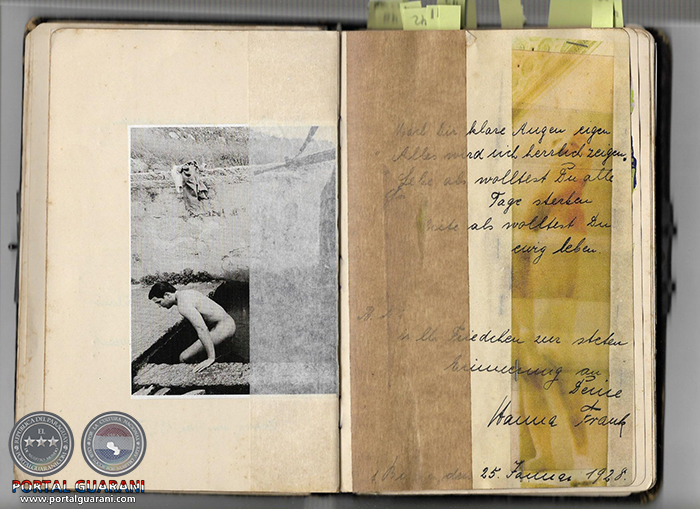 11 42
klare Augen eigen
Alles wird sich herrlich zeigen.
Lebe, als wolltest Du alle
Tage sterben
als wolltest Du
ewig leben.
Friedchen zur steten
Erinnerung an
Deine
Hanna Frank
25. Januar 1928.
REPUBLICA DEL PARAGUAY
PORTAL GUARANI
www.portalguarani.com